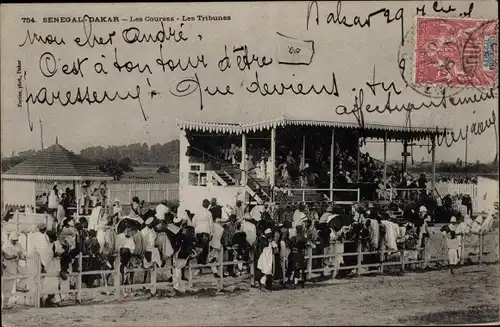 754. SENEGAL-DAKAR — Les Courses - Les Tribunes
Dakar 29
Mon cher André,
C'est à ton tour d'être
paresseux, que deviens
tu
affectueusement
Fortier, phot., Dakar